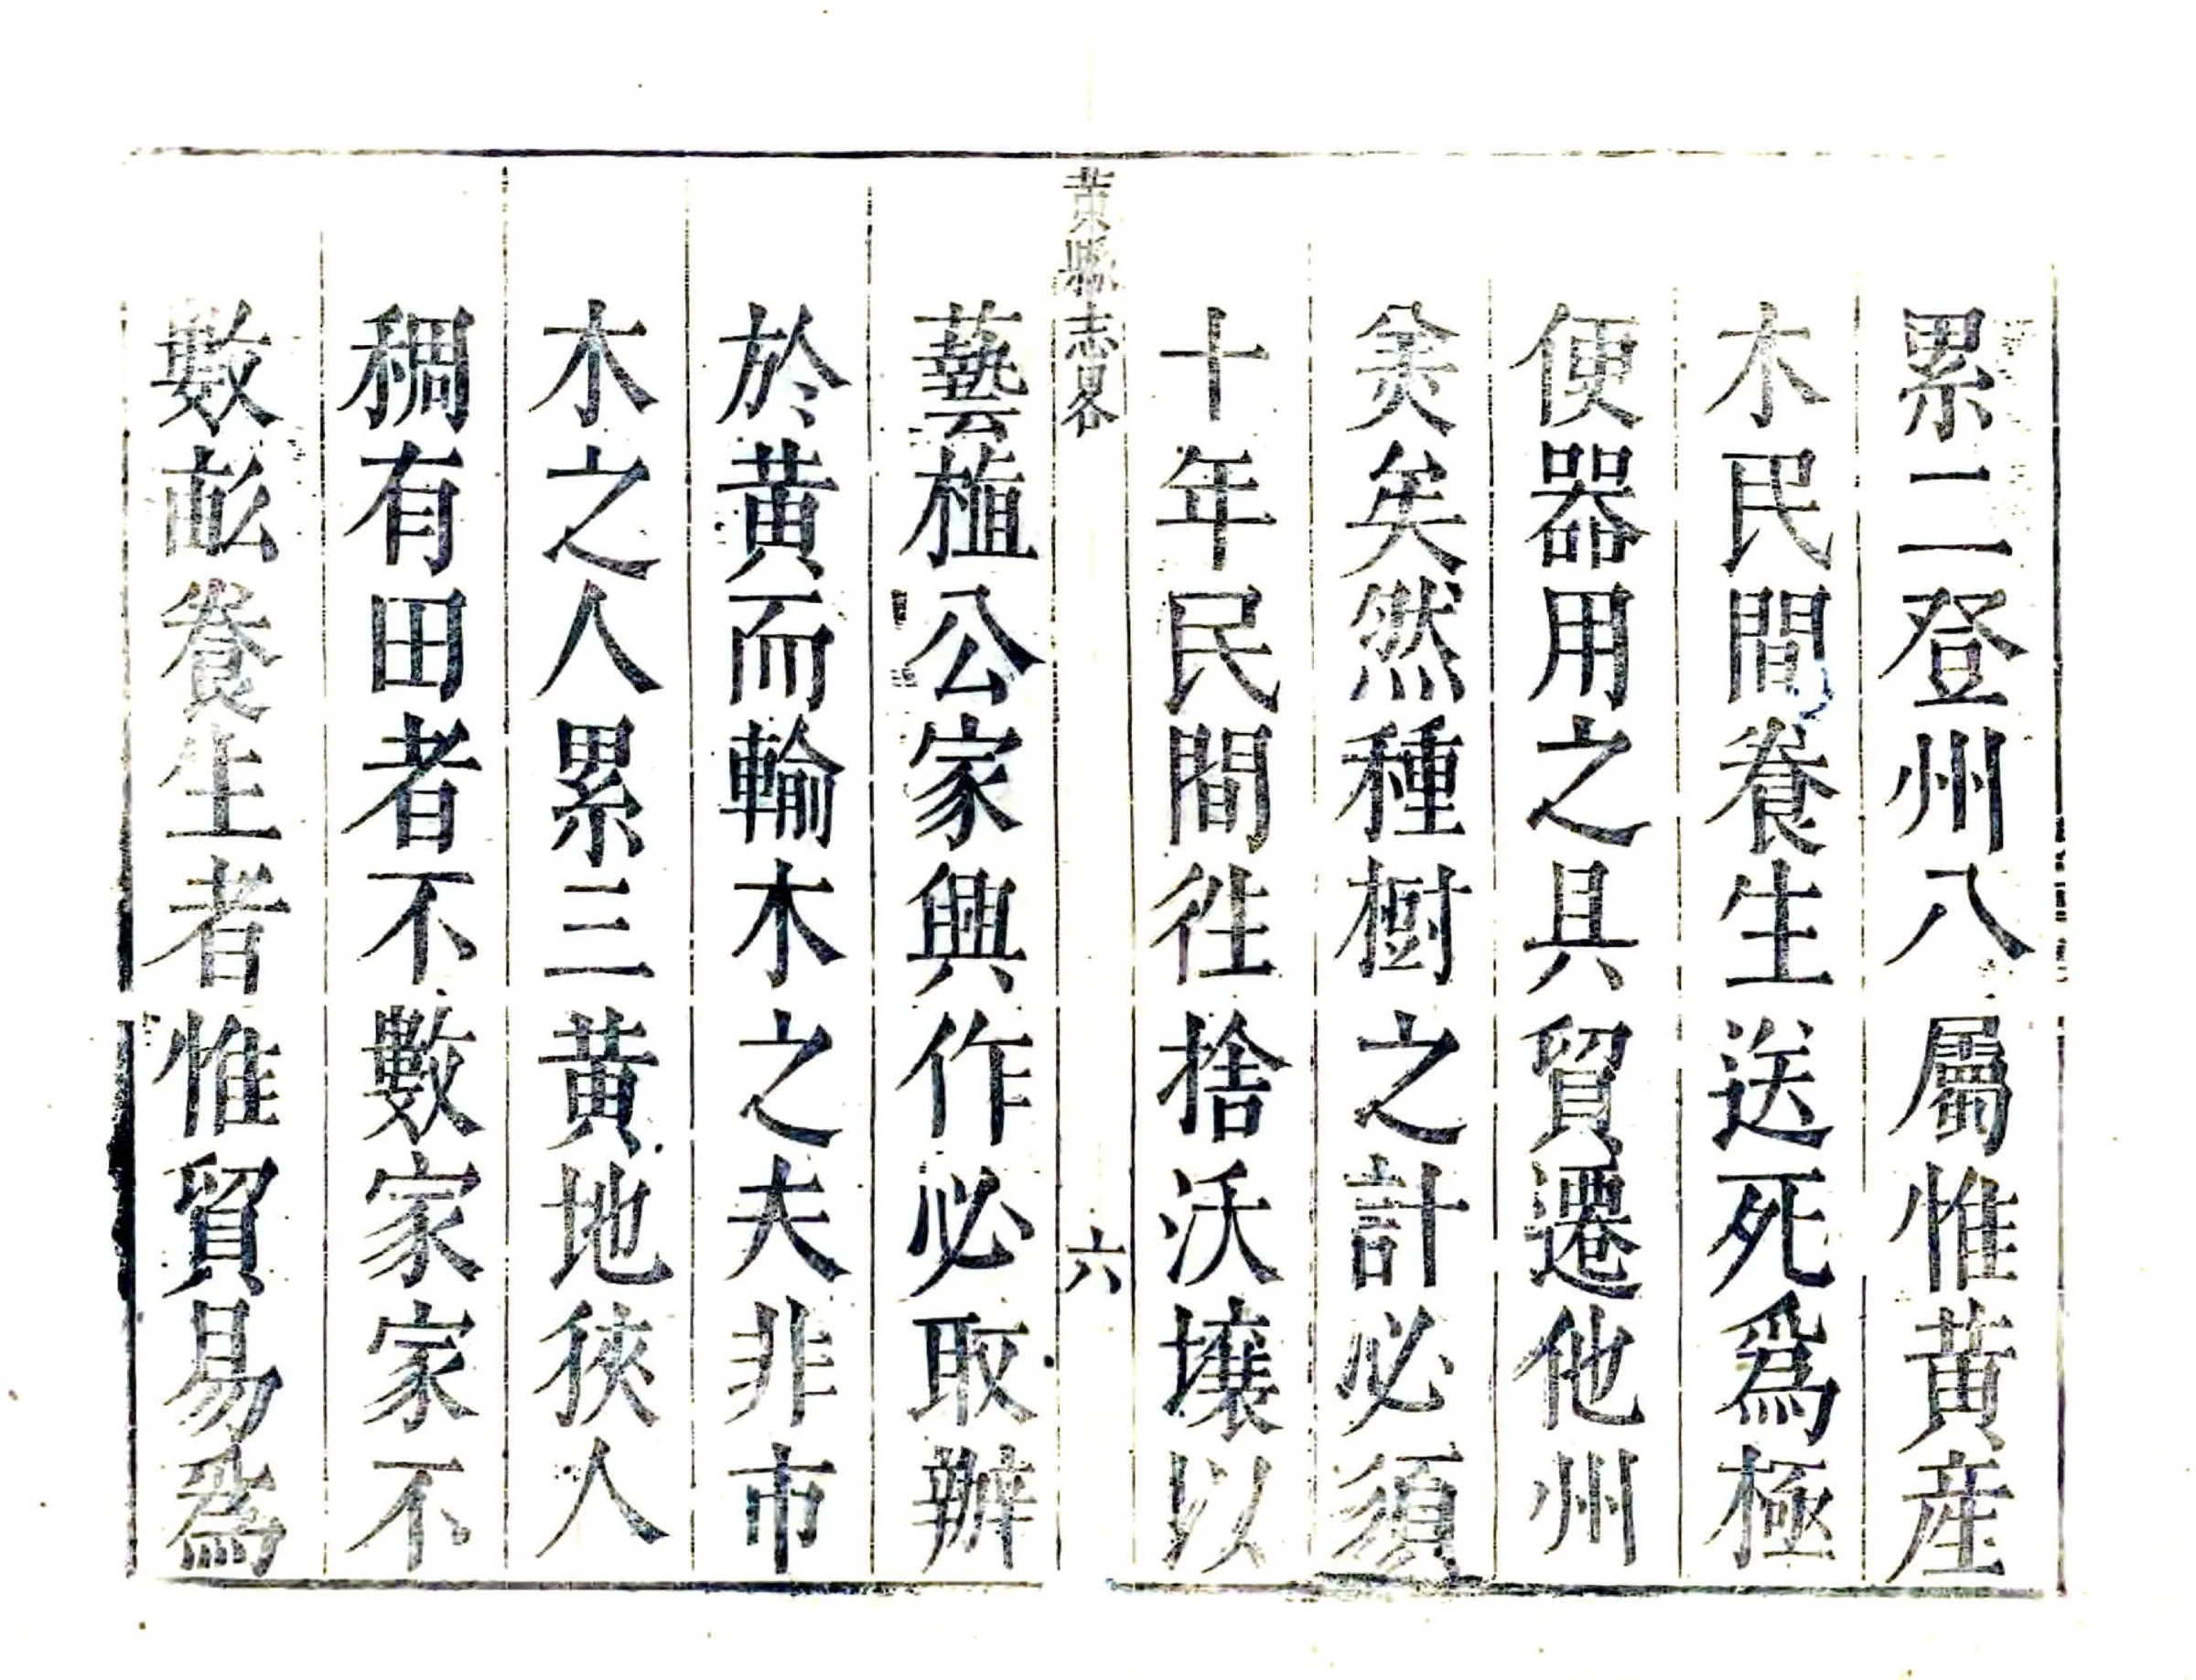 累二登州八屬惟黃産
木民間養生送死爲極
便器用之具貿遷他州
矣然種樹之計必須
十年民間徃捨沃壤以
黃縣志畧
六
藝植公家興作必取辦
於黃而輸木之夫非市
木之人累三黃地狹人
稠有田者不數家家不
數畝養生者惟貿易爲